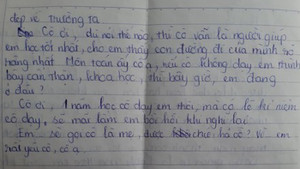 đẹp về trường ta
Cô ơi, dù nói thế nào, thì cô vẫn là người giúp
em học tốt nhất, cho em thấy con đường đi của mình sẽ
nặng nhất. Môn toán ấy cô ạ, nếu cô không dạy em trình
bày cẩn thận, khoa học, thì bây giờ, em đang
ở đâu?
Cô ơi, 1 năm học cô dạy em thôi, mà có lẽ kỉ niệm
cô dạy, sẽ mãi làm em bồi hồi khi nghĩ lại
Em sẽ gọi cô là mẹ, được chứ hả cô? Vì em
rất yêu cô, cô ạ.